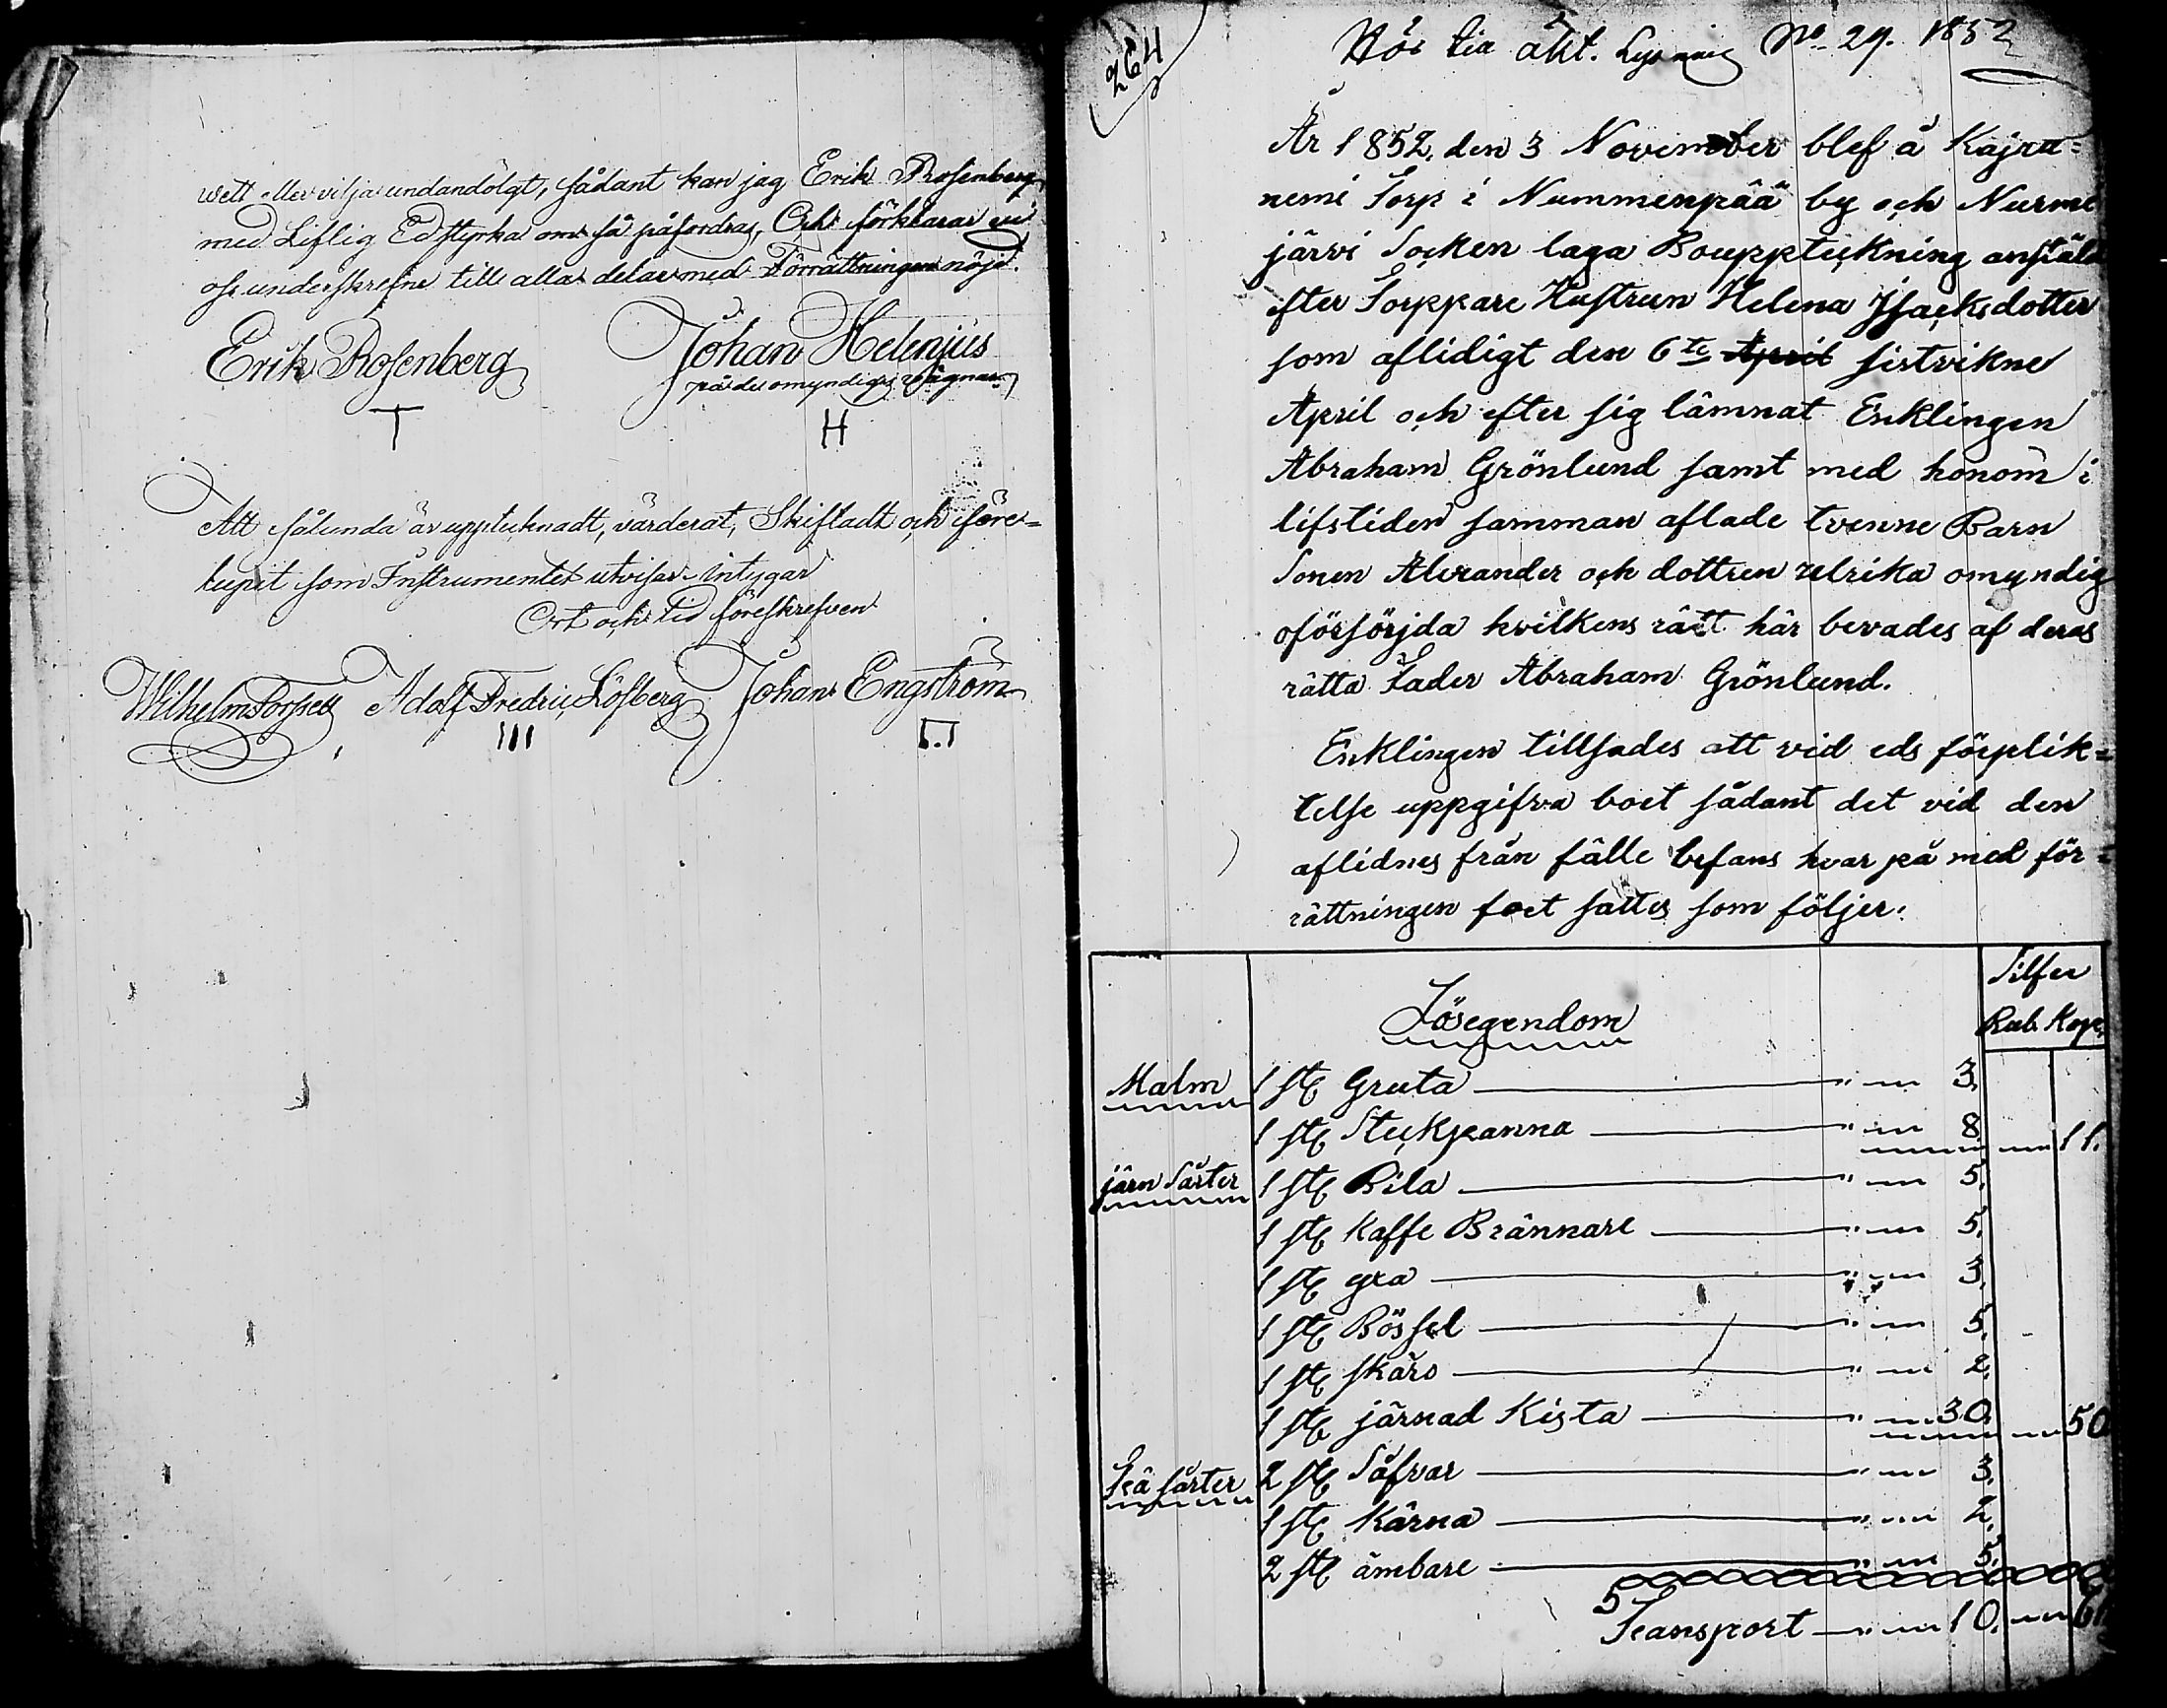 wett eller vilja undandölgt, sådant kan jag Erik Rosenberg
med Liflig Ed styrka om så påfordras, Och förklarar vi
oss underskrefne till alla delar med Förrättningen nöjd.
Erik Rosenberg Johan Helenjus
på de omyndiges vägnar
T H
Att sålunda är upptecknadt, värderat, Skiftadt och före=
lupit som Instrumentet utvisar intygar
Ort och tid föreskrefven
Wilhelm Forssell Adolf Fredric Löfberg Johan Engström
III
264
No 29. 1852
År 1852, den 3 November blef å Kajra=
nemi Torp i Nummenpää by och Nurmi
järvi Socken laga Bouppteckning anstäld
efter Torppare Hustrun Helena Jsacksdotter
som aflidigt den 6te April sistvikne
April och efter sig lämnat Enklingen
Abraham Grönlund samt med honom i
lifstiden samman aflade tvenne Barn
Sonen Alexander och dottren Ulrika omyndig
oförsörjda hvilkens rätt här bevades af deras
rätta Fader Abraham Grönlund.
Enklingen tillsades att vid eds förplik=
telse uppgifva boet sådant det vid den
aflidnes från fälle befans hvar på med för=
rättningen foet sattes som följer.
Silfer
Lösegendom Rub. Kop.
Malm 1 st Gruta 3.
1 st Steckpanna 8 11.
järn Sarter 1 st Bila 5.
1 st Kaffe Brännare 5.
1 st gra 3.
1 st Bössel 5.
1 st skäro 2.
1 st järnad Kista 30. 50
Trä sarter 2 st Såfvar 3.
1 st Kärna 2.
2 st ämbare 5.
5
Transport 10. 61